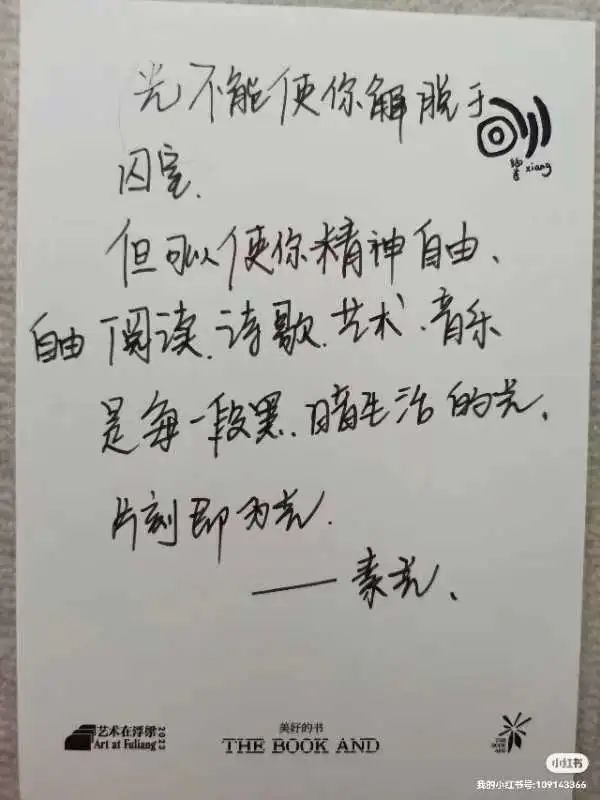 光不能使你解脱于
囚室.
但可以使你精神自由、
自由 阅读、诗歌、艺术、音乐
是每一段黑、暗生活的光、
片刻即为光.
—— 素光、
xiang
艺术在浮梁 2023
Art at Fuliang
美好的书
THE BOOK AND
THE
BOOK
AND
小红书
我的小红书号:109143366